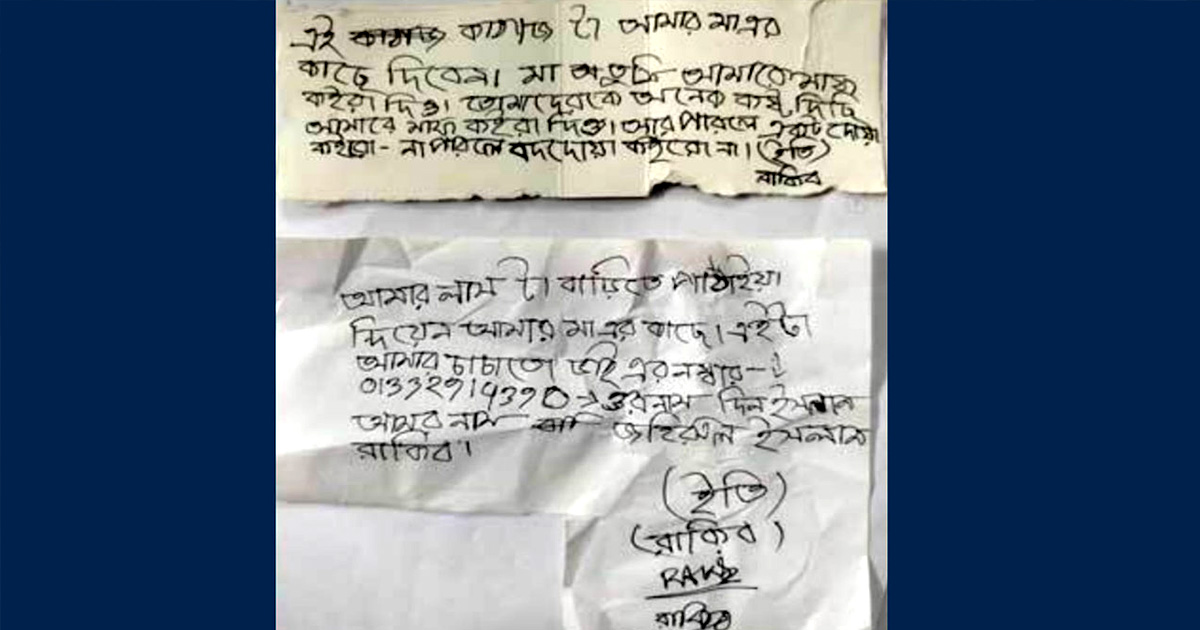 এই কাগজ কাগজ টা আমার মাএর
কাছে দিবেন। মা তুমি আমাকে মাফ
কইরা দিও। তোমাদেরকে অনেক কষ্ট দিছি
আমারে মাফ কইরা দিও। আর পারলে একটু দোয়া
কইরো - না পারলে বদদোয়া কইরো না। (ইতি)
রাকিব
আমার লাস টা বাড়িতে পাঠাইয়া
দিয়েন আমার মাএর কাছে। এইটা
আমার চাচাতো ভাই এর নম্বার-
→ ওর নাম দিন ইসলাম
আমার নাম জহিরুল ইসলাম
রাকিব।
(ইতি)
(রাকিব)
রাকিব